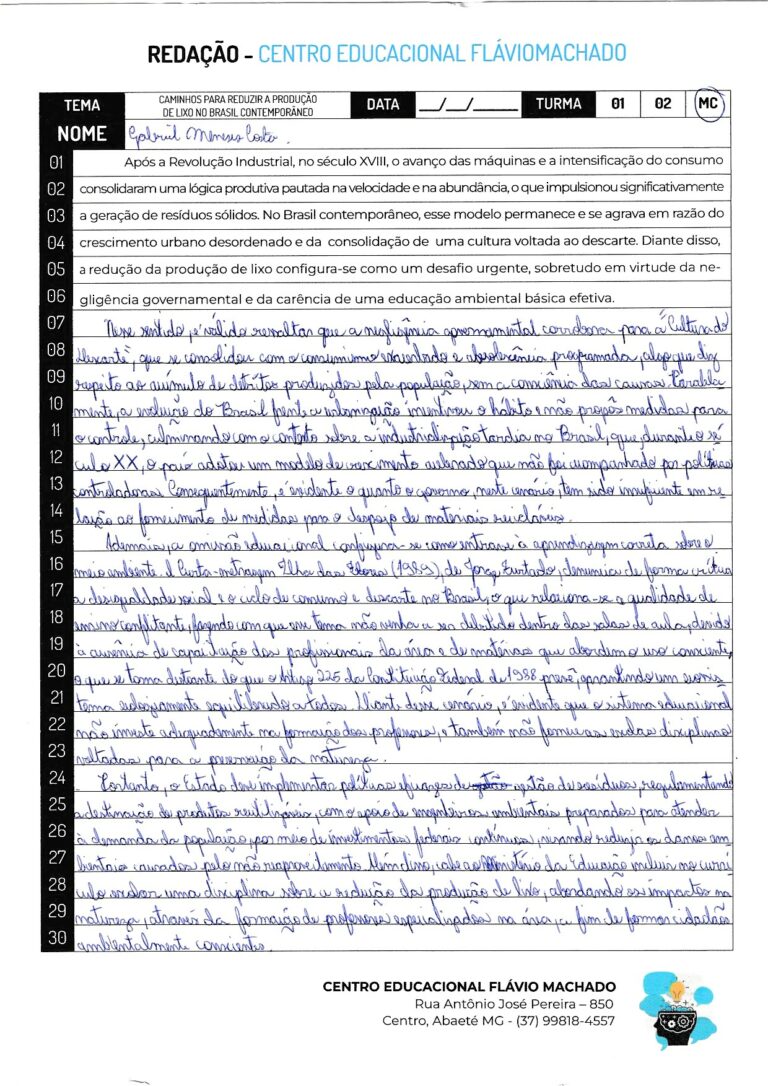 REDAÇÃO - CENTRO EDUCACIONAL FLÁVIOMACHADO
TEMA
CAMINHOS PARA REDUZIR A PRODUÇÃO
DE LIXO NO BRASIL CONTEMPORÂNEO
DATA __/__/____ TURMA 01 02 MC
NOME Gabriel Meneses Costa.
01 Após a Revolução Industrial, no século XVIII, o avanço das máquinas e a intensificação do consumo
02 consolidaram uma lógica produtiva pautada na velocidade e na abundância, o que impulsionou significativamente
03 a geração de resíduos sólidos. No Brasil contemporâneo, esse modelo permanece e se agrava em razão do
04 crescimento urbano desordenado e da consolidação de uma cultura voltada ao descarte. Diante disso,
05 a redução da produção de lixo configura-se como um desafio urgente, sobretudo em virtude da ne-
06 gligência governamental e da carência de uma educação ambiental básica efetiva.
07 Nesse sentido, é válido ressaltar que a negligência governamental corrobora para a "Cultura do
08 descarte", que se consolidou com o consumismo exacerbado e obsolescência programada, algo que diz
09 respeito ao acúmulo de detritos produzidos pela população, sem a consciência das causas. Paralela
10 mente, a evolução do Brasil frente a urbanização incentivou o hábito e não propôs medidas para
11 o controle, culminando com o contexto sobre a industrialização tardia no Brasil, que, durante o sé
12 culo XX, o país adotou um modelo de crescimento acelerado que não foi acompanhado por políticas
13 controladoras. Consequentemente, é evidente o quanto o governo, neste cenário, tem sido insuficiente em re
14 lação ao fornecimento de medidas para o despojo de materiais recicláveis.
15 Ademais, a omissão educacional configura-se como entrave à aprendizagem correta sobre o
16 meio ambiente. O Curta-metragem Ilha das Flores (1989), de Jorge Furtado, denuncia de forma crítica
17 a desigualdade social e o ciclo de consumo e descarte no Brasil, o que relaciona-se a qualidade de
18 ensino conflitante, fazendo com que esse tema não venha a ser debatido dentro das salas de aula, devido
19 à ausência de capacitação dos profissionais da área e de matérias que abordem o uso consciente,
20 o que se torna distante do que o Artigo 225 da Constituição Federal de 1988 prevê, garantindo um ecossis
21 tema ecologicamente equilibrado a todos. Diante desse cenário, é evidente que o sistema educacional
22 não investe adequadamente na formação dos professores, e também não fornece as escolas disciplinas
23 voltadas para a preservação da natureza.
24 Portanto, o Estado deve implementar políticas eficazes de gestão de resíduos, regulamentando
25 a destinação de produtos reutilizáveis, com o apoio de engenheiros ambientais preparados para atender
26 à demanda da população, por meio de investimentos federais contínuos, visando reduzir os danos am
27 bientais causados pelo não reaproveitamento. Além disso, cabe ao Ministério da Educação incluir no currí
28 culo escolar uma disciplina sobre a redução da produção de lixo, abordando os impactos na
29 natureza, através da formação de professores especializados na área, a fim de formar cidadãos
30 ambientalmente conscientes.
CENTRO EDUCACIONAL FLÁVIO MACHADO
Rua Antônio José Pereira – 850
Centro, Abaeté MG - (37) 99818-4557